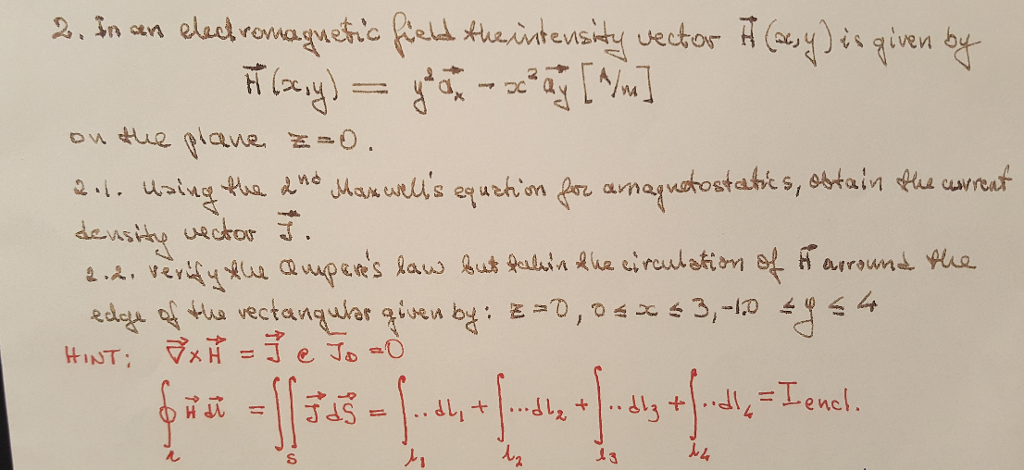 2. In an electromagnetic field the intensity vector H⃗(x,y) is given by
H⃗(x,y) = y² a⃗x - x² a⃗y [A/m]
on the plane z=0.
2.1. Using the 2nd Maxwell's equation for amagnetostatics, obtain the current
density vector J⃗.
2.2. Verify the Ampere's law but takin the circulation of H⃗ arround the
edge of the rectangular given by: z=0, 0≤x≤3, -1.0 ≤y≤4
HINT: ∇⃗×H⃗ = J⃗ e J̅D=0
∮ H⃗ dl⃗ = ∬ J⃗ dS⃗ = ∫..dL1 + ∫...dL2 + ∫..dl3 + ∫..dl4 = I encl.
l S l1 l2 l3 l4